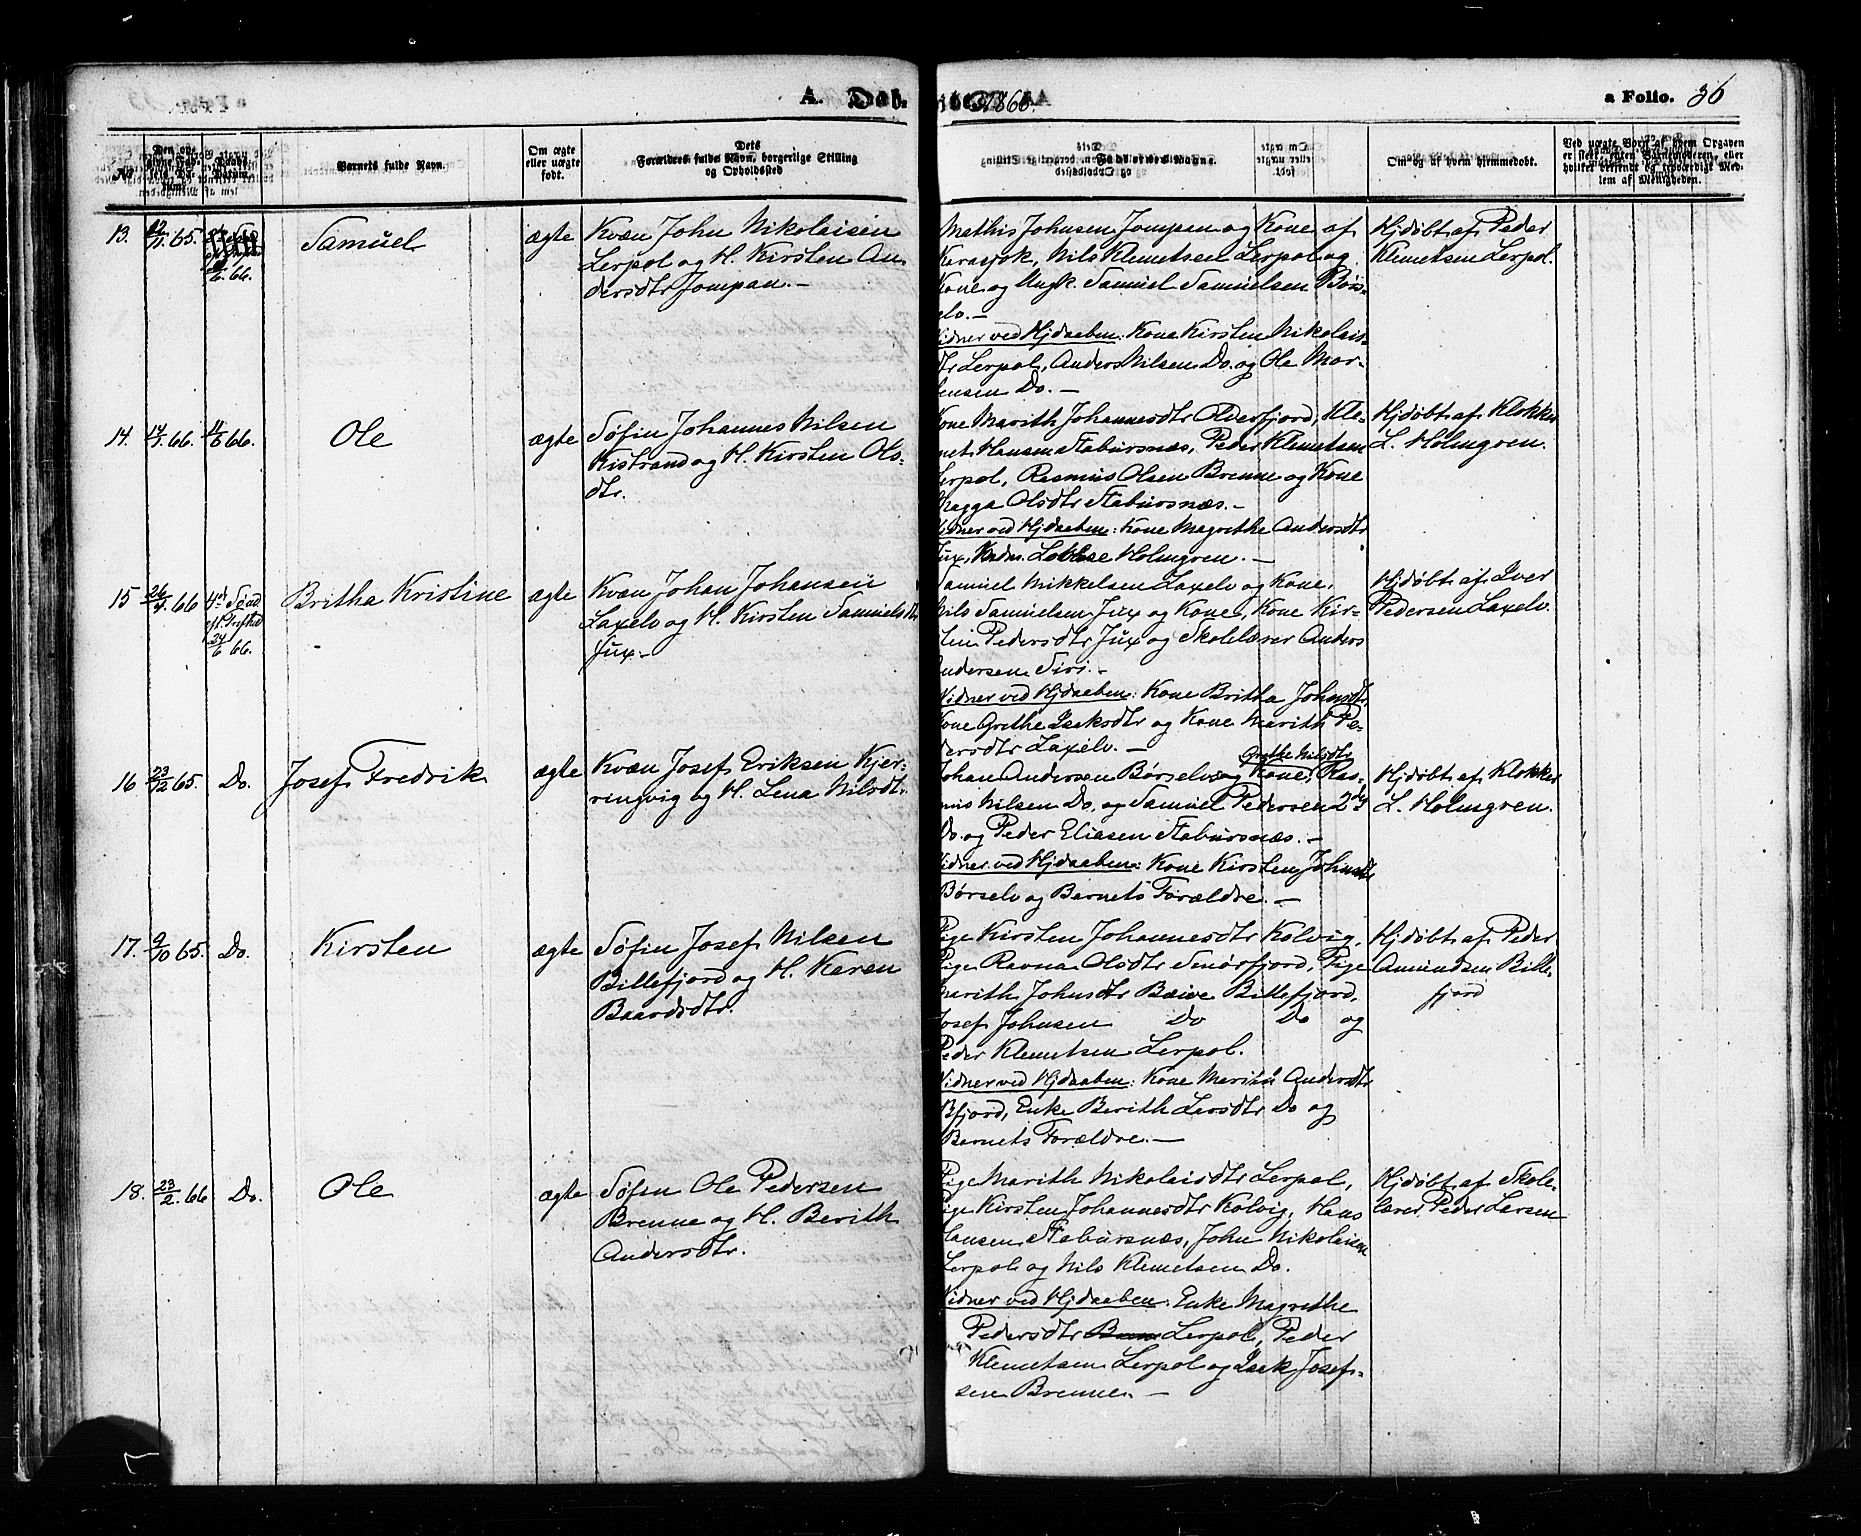 A. Døb. 1866. a Folio. 36
No
Barnets fulde Navn.
Om ægte
eller uægte
født.
Dets
Forældres fulde Navn, borgerlige Stilling
og Opholdssted
Faddernes Navne.
Om og af hvem hjemmedøbt.
13.
65.
66.
Samuel
ægte
Kvæn John Nikolaisen
Lerpol og H. Kirsten An-
dersdtr Jompan.-
Mathis Johnsen Jompan og Kone af
Karasjok, Nils Klemetsen Lerpol og
Kone og Ungk. Samuel Samuelsen Børs-
elv.-
Vidner ved Hjdaaben: Kone Kirsten Nikolais-
dtr Lerpol, Anders Nilsen Do. og Ole Mor-
tensen Do.-
Hjdøbt af Peder
Klemetsen Lerpol.
14.
66.
66.
Ole
ægte
Søfin Johannes Nilsen
Kistrand og H. Kirsten Ols-
dtr.
Kone Marith Johannesdtr Olderfjord, Kle-
met Hansen Staburnæs, Peder Klemetsen
Lerpol, Rasmus Olsen Brenne og Kone
Ragga Olsdtr Stabursnæs.-
Vidner ved Hjdaaben: Kone Magrethe Andersdtr
Jux, Holmgren.-
Hjdøbt af Klokker
L. Holmgren.
15
66
24/6 66.
Britha Kristine
ægte
Kvæn Johan Johansen
Laxelv og H. Kirsten Samuelsdtr
Jux.-
Samuel Mikkelsen Laxelv og Kone,
Nils Samuelsen Jux og Kone, Kone Kir-
sten Pedersdtr Jux og Skolelærer Anders
Andersen Siri.-
Vidner ved Hjdaaben: Kone Britha Johnsdtr,
Kone Grethe Iseksdtr og Kone Marith Pe-
dersdtr Laxelv.-
Hjdøbt af Iver
Pedersen Laxelv.
16
23/12 65.
Do.
Josef Fredrik
ægte
Kvæn Josef Eriksen Kjer-
ringvig og H. Lena Nilsdtr.
Grethe Nilsdtr
Johan Andersen Børselv og Kone, Ras-
mus Nilsen Do. og Samuel Pedersen 2det
Do. og Peder Eliasen Stabursnæs.-
Vidner ved Hjdaaben: Kone Kirsten Johnsdtr
Børselv og Barnets Forældre.-
Hjdøbt af Klokker
L. Holmgren.
17.
9/10 65.
Do.
Kirsten
ægte
Søfin Josef Nilsen
Billefjord og H. Karen
Baardsdtr.
Pige Kirsten Johannesdtr Kolvig,
Pige Ravna Olsdtr Smörfjord, Pige
Marith Johnsdtr Bæive Billefjord,
Josef Johnsen Do Do og
Peder Klemetsen Lerpol.
Vidner ved Hjdaaben: Kone Marith Andersdtr
Bfjord, Enke Berith Larsdtr Do og
Barnets Forældre.-
Hjdøbt af Peder
Amundsen Bille-
fjord
18.
23/2 66
Do.
Ole
ægte
Søfin Ole Pedersen
Brenne og H. Berith
Andersdtr.
Pige Marith Nikolaisdtr Lerpol,
Pige Kirsten Johannesdtr Kolvig, Hans
Hansen Stabursnæs, John Nikolaisen
Lerpol og Nils Klemetsen Do.
Vidner ved Hjdaaben: Enke Magrethe
Pedersdtr Lerpol, Peder
Klemetsen Lerpol og Isek Josef-
sen Brenne.-
Hjdøbt af Skole-
lærer Peder Larsen